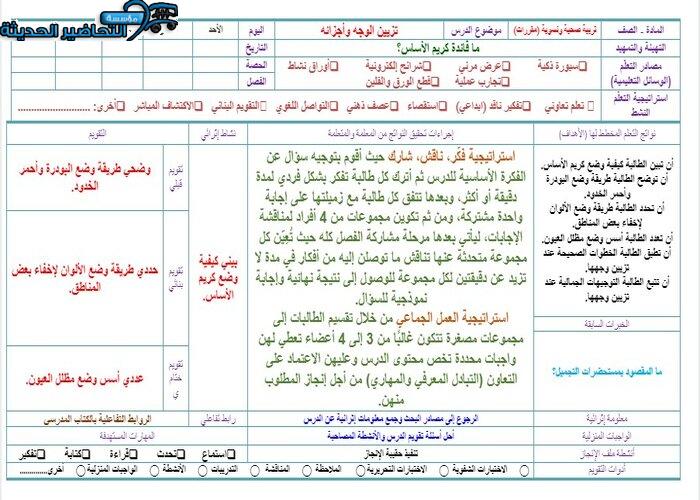 مؤسسة التحاضير الحديثة
المادة - الصف
تربية صحية ونسوية (مقررات)
موضوع الدرس
تزيين الوجه وأجزائه
اليوم
الأحد
التهيئة والتمهيد
ما فائدة كريم الأساس؟
التاريخ
مصادر التعلم
(الوسائل التعليمية)
سبورة ذكية
عرض مرئي
شرائح إلكترونية
أوراق نشاط
تجارب عملية
قطع الورق والفلين
الحصة
الفصل
استراتيجية التعلم
النشط
تعلم تعاوني
تفكير ناقد (ابداعي)
استقصاء
عصف ذهني
التواصل اللغوي
التقويم البنائي
الاكتشاف المباشر
أخرى:
نواتج التعلم المخطط لها (الأهداف)
إجراءات تحقيق النواتج من المعلمة والمتعلمة
نشاط إثرائي
التقويم
أن تبين الطالبة كيفية وضع كريم الأساس.
أن توضح الطالبة طريقة وضع البودرة
وأحمر الخدود.
أن تحدد الطالبة طريقة وضع الألوان
لإخفاء بعض المناطق.
أن تعدد الطالبة أسس وضع مظلل العيون.
أن تطبق الطالبة الخطوات الصحيحة عند
تزيين وجهها.
أن تتبع الطالبة التوجيهات الجمالية عند
تزيين وجهها.
الخبرات السابقة
ما المقصود بمستحضرات التجميل؟
استراتيجية فكّر، ناقش، شارك حيث أقوم بتوجيه سؤال عن
الفكرة الأساسية للدرس ثم أترك كل طالبة تفكر بشكل فردي لمدة
دقيقة أو أكثر، وبعدها تتفق كل طالبة مع زميلتها على إجابة
واحدة مشتركة، ومن ثم تكوين مجموعات من 4 أفراد لمناقشة
الإجابات، ليأتي بعدها مرحلة مشاركة الفصل كله حيث تُعيّن كل
مجموعة متحدثة عنها تناقش ما توصلن إليه من أفكار في مدة لا
تزيد عن دقيقتين لكل مجموعة للوصول إلى نتيجة نهائية وإجابة
نموذجية للسؤال.
استراتيجية العمل الجماعي من خلال تقسيم الطالبات إلى
مجموعات مصغرة تتكون غالبًا من 3 إلى 4 أعضاء تعطي لهن
واجبات محددة تخص محتوى الدرس وعليهن الاعتماد على
التعاون (التبادل المعرفي والمهاري) من أجل إنجاز المطلوب
منهن.
بيني كيفية
وضع كريم
الأساس.
تقويم
قبلي
وضحي طريقة وضع البودرة وأحمر
الخدود.
تقويم
بنائي
حددي طريقة وضع الألوان لإخفاء بعض
المناطق.
تقويم
ختام
ي
عددي أسس وضع مظلل العيون.
معلومة إثرائية
الرجوع إلى مصادر البحث وجمع معلومات إثرائية عن الدرس
رابط تفاعلي
الروابط التفاعلية بالكتاب المدرسي
الواجبات المنزلية
أحل أسئلة تقويم الدرس والأنشطة المصاحبة
المهارات المستهدفة
أنشطة ملف الإنجاز
تنفيذ حقيبة الإنجاز
استماع
تحدث
قراءة
كتابة
تفكير
أدوات التقويم
الاختبارات الشفوية
الاختبارات التحريرية
الملاحظة
المناقشة
التدريبات
الأنشطة
الواجبات المنزلية
أخرى